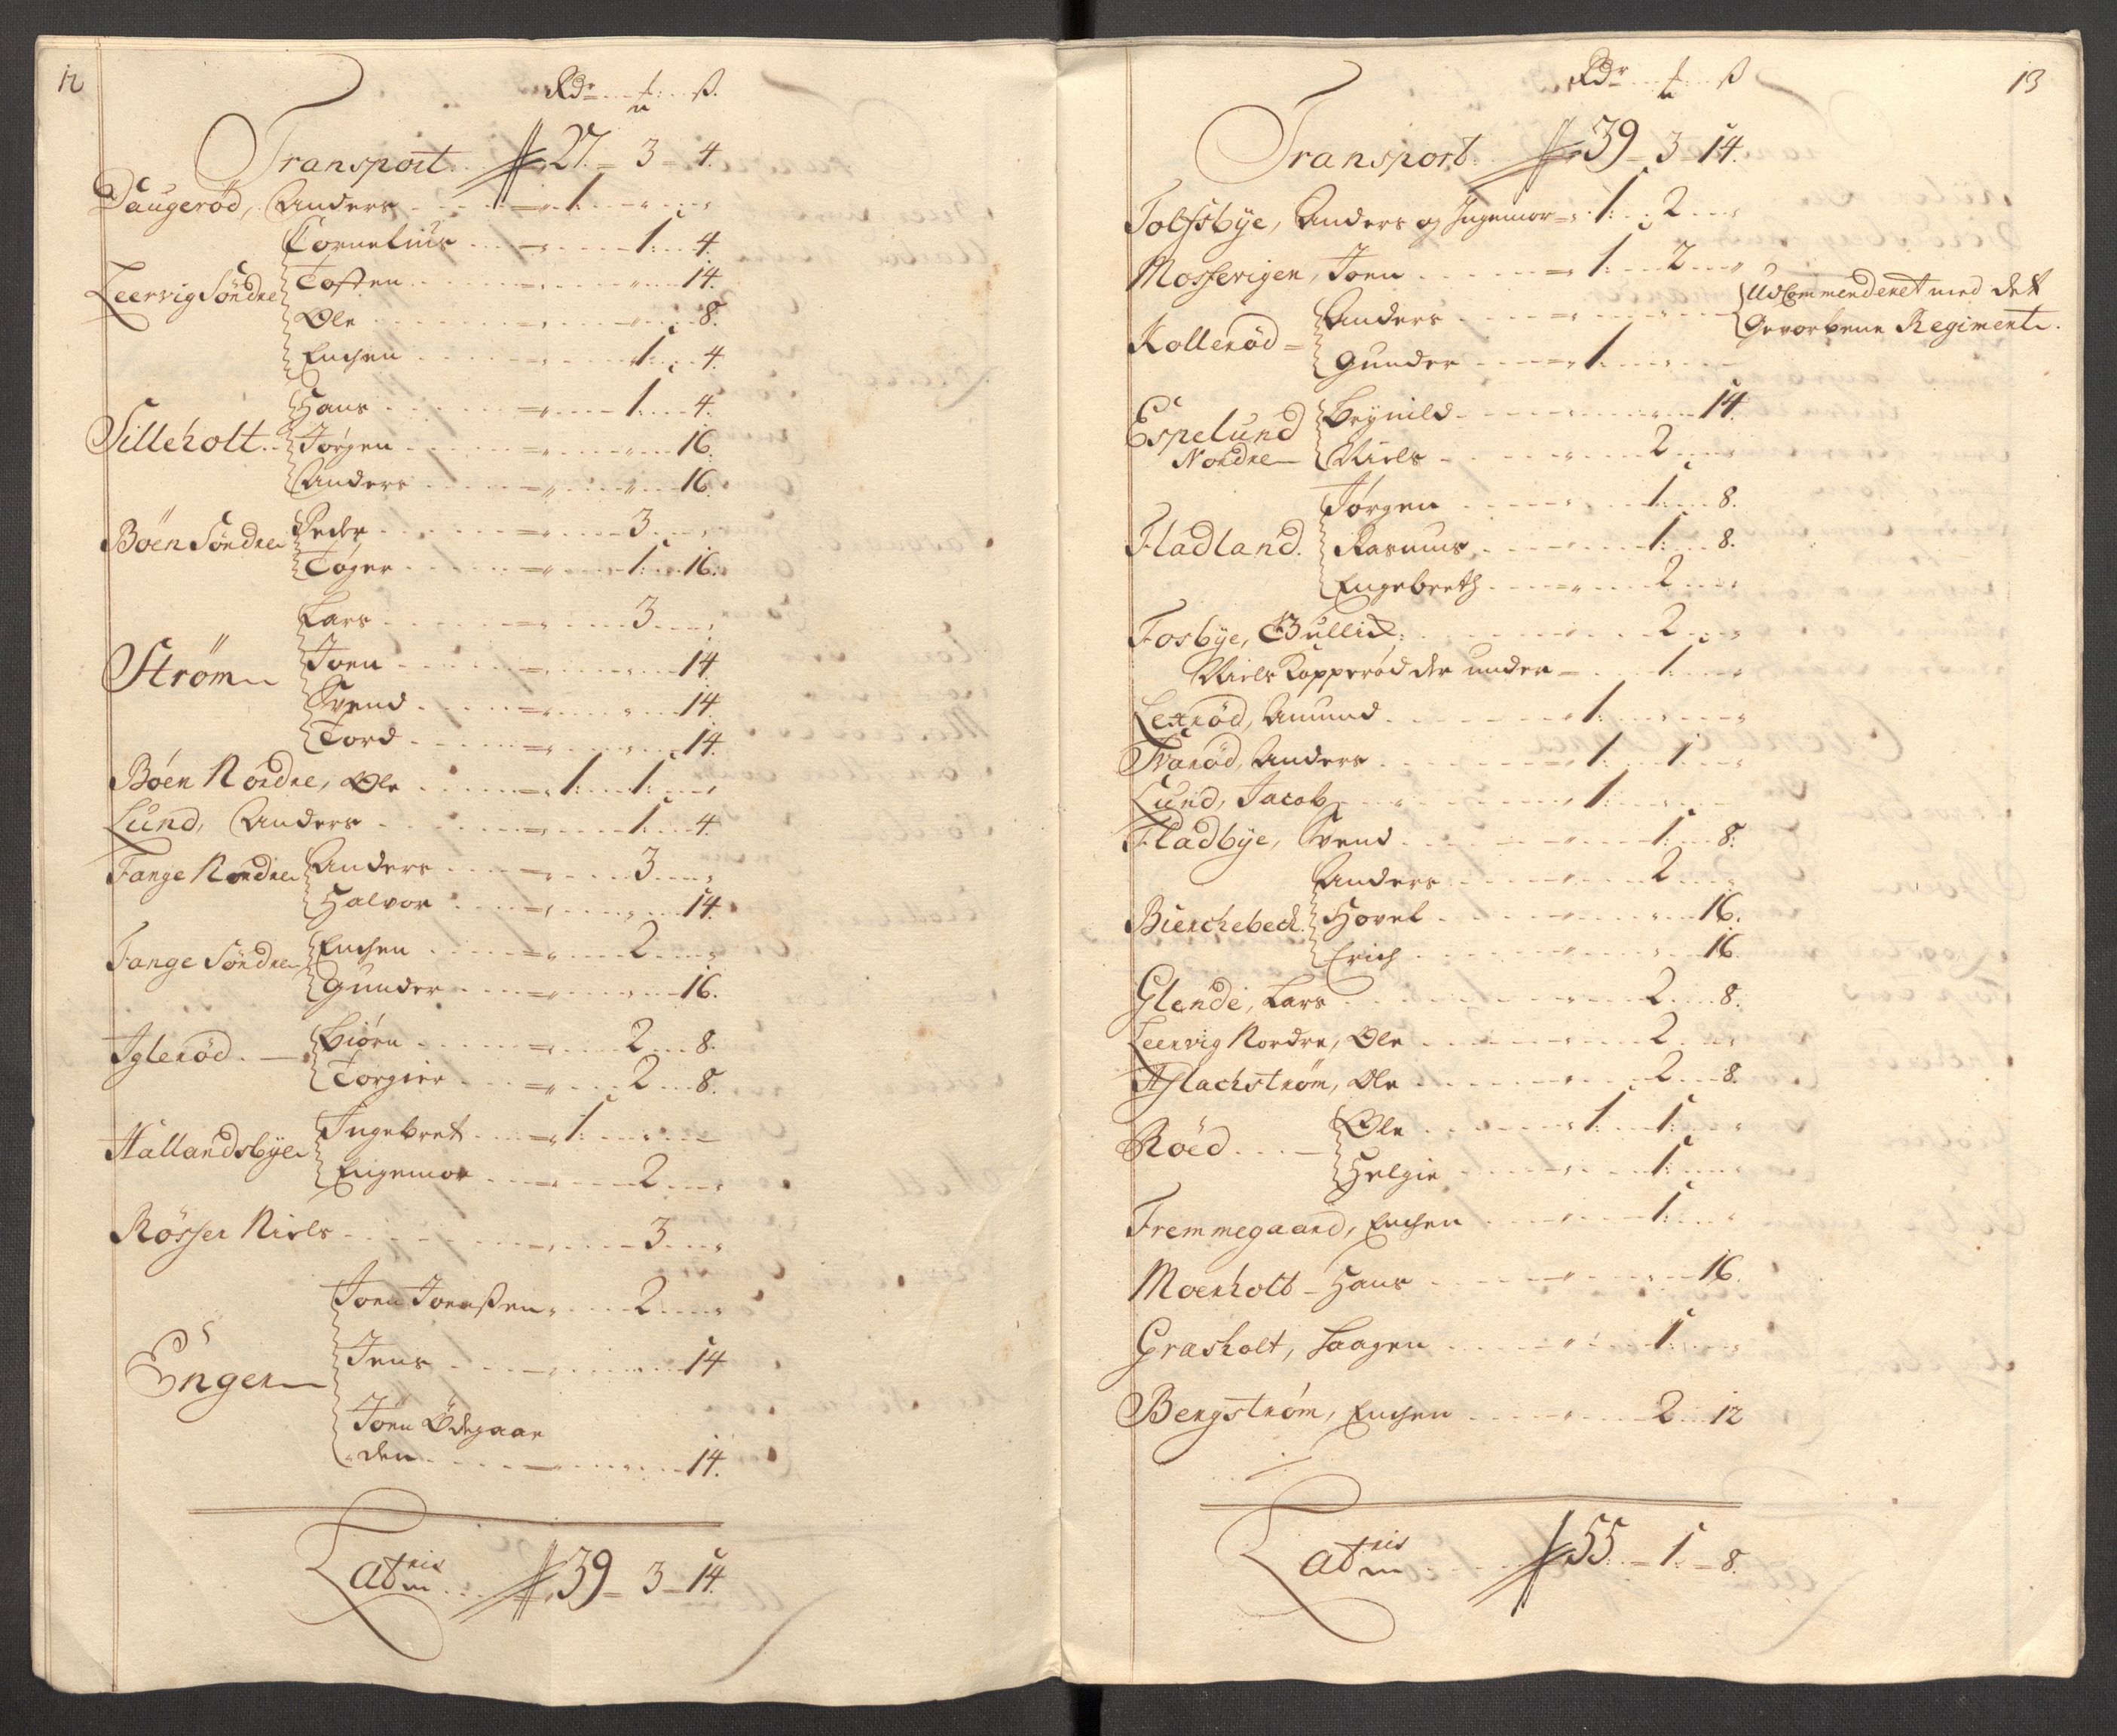 12
Rdr ß.
Transport 27 = 3 = 4.
Daugerød, Anders 1
Cornelius 1 4.
Leervig Söndre Tosten 14.
Ole 8.
Enchen 1 4.
Hans 1 4.
Silleholt Jörgen 16.
Anders 16.
Böen Söndre Peder 3
Töger 1 16.
Lars 3
Ström Joen 14.
Svend 14.
Tord 14.
Böen Nordre, Ole 1 1
Lund, Anders 1 4.
Fange Nordre Anders 3
Halvor 14.
Fange Söndre Enchen 2
Gunder 16.
Iglerød Biörn 2 8.
Torgier 2 8.
Hallandsbye Ingebret 1
Engemor 2
Rösser Niels 3
Joen Joenßen 2
Enger Jens 14
Joen Ödegaar
den 14.
Latris 39 = 3 = 14.
13
Rdr ß
Transport 39 = 3 = 14.
Tolfsbye, Anders og Ingemor 1 2
Mosserigen, Joen 1 2
Kollerød Anders UdCommenderet med det
Gevorbene Regimente.
Gunder 1
Espelund Brynild 14.
Nordre Niels 2
Jörgen 1 8.
Fladland Rasmus 1 8.
Engebreth 2
Fosbye, Gullich 2
Niels Kopperød der under 1
Lexrød, Amund 1
Svarød, Anders 1 1
Lund, Jacob 1
Fladbye, Svend 1 8.
Anders 2
Bierchebech Hovel 16.
Erich 16.
Glende, Lars 2 8.
Leervig Nordre, Ole 2
Aslachström, Ole 2 8.
Röed Ole 1 1
Helgie 1
Fremmegaard, Enchen 1
Moenholt Hans 16.
Grasholt, Haagen 1
Bergström, Enchen 2 12
Latris 55 = 1 = 8.